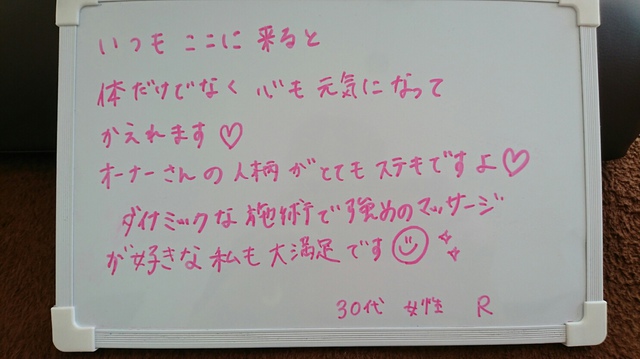 いつも ここに 来ると
体だけでなく 心も 元気になって
かえれます♡
オーナーさんの人柄がとてもステキですよ♡
ダイナミックな施術で強めのマッサージ
が好きな私も大満足です☺
30代 女性 R